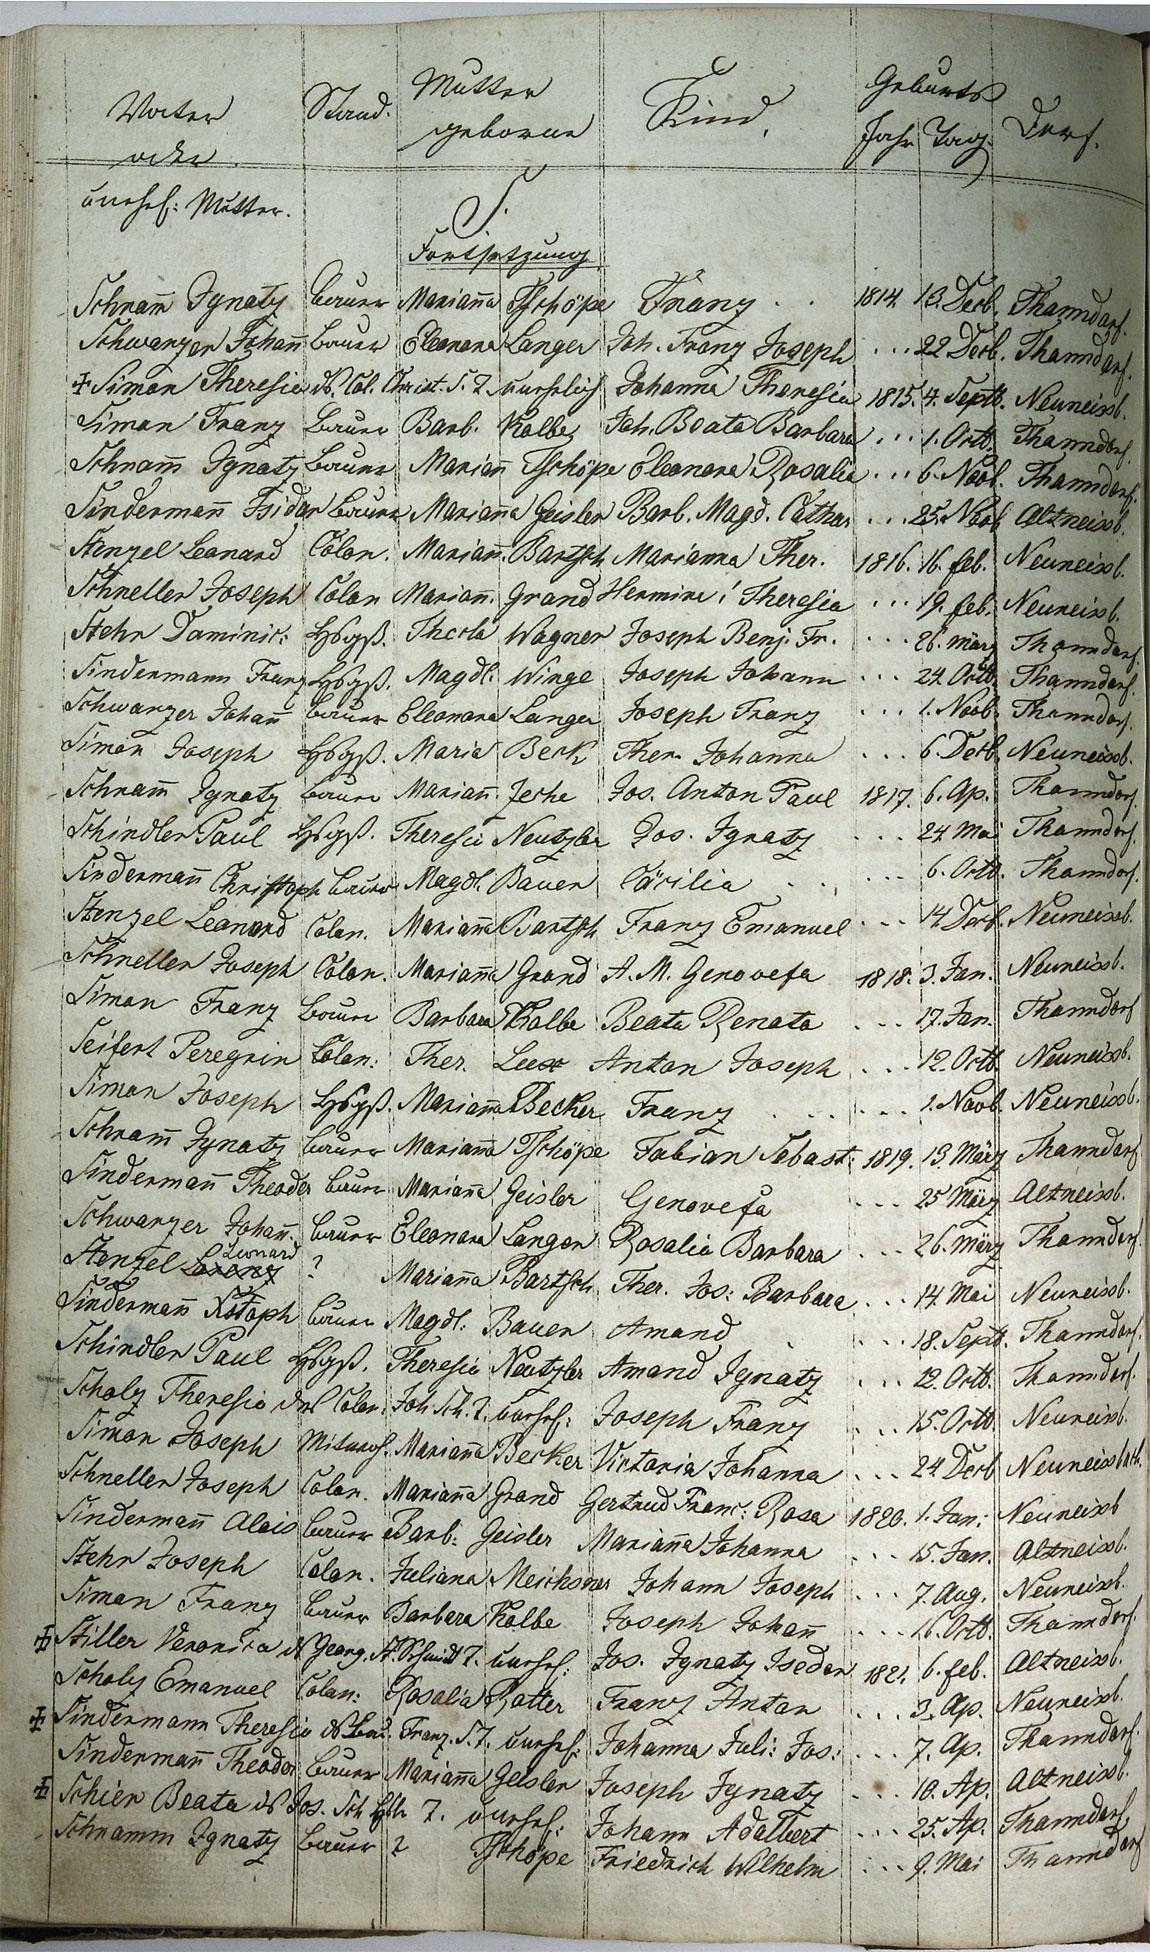 Vater oder unehel: Mutter. Stand. Mutter geborne Kind. Geburts Jahr Tag. Dorf.
S.
Fortsetzung
Schram̄ Ignatz Bauer Mariana Tschöpe Franz . . 1814. 13. Decb. Thanndorf.
Schwarzer Johan̄ Bauer Eleonora Langer Joh. Franz Joseph ... 22 Decb. Thanndorf.
Simon Theresia ds. Col. Christ. S. T. unehelich Johanna Theresia 1815. 4. Septb. Neuneissb.
Simon Franz Bauer Barb. Kolbe Joh. Beata Barbara ... 1. Octb. Thanndorf.
Schram̄ Ignatz Bauer Marian̄ Tschöpe Eleonora Rosalia ... 6. Novb. Thanndorf.
Sinderman̄ Isidor Bauer Mariana Geisler Barb. Magd. Cathar ... 25. Novb Altneissb.
Stenzel Leonard Colon. Marian̄. Bartsch Marianna Ther. 1816. 16. feb. Neuneissb.
Schneller Joseph Colon Marian̄. Grand Hermine Theresia ... 19. feb. Neuneissb.
Stehr Dominic: Hsgß. Thecla Wagner Joseph Benj. Fr. ... 26. März Thanndorf.
Sindermann Franz Hsgß. Magdl. Winge Joseph Johann ... 24. Octb. Thanndorf.
Schwarzer Johan̄ Bauer Eleonora Langer Joseph Franz ... 1. Novb. Thanndorf.
Simon Joseph Hsgß. Maria Beck Ther. Johanna ... 6. Decb. Neuneissb.
Schram̄ Ignatz Bauer Marian̄. Jos. Anton Paul 1817. 6. Ap. Thanndorf.
Schindler Paul Hsgß. Theresia Neutzler Jos. Ignatz ... 24 Mai Thanndorf.
Sinderman̄ Christoph Bauer Magdl. Bauer Cäcilia ... 6. Octb. Thanndorf.
Stenzel Leonard Colon. Marian̄a Bartsch Franz Emanuel ... 14. Decb. Neuneissb.
Schneller Joseph Colon. Marian̄a Grand A. M. Genovefa 1818. 3. Jan. Neuneissb.
Simon Franz Bauer Barbara Kolbe Beata Renata ... 17. Jan. Thanndorf
Seifert Peregrin Colon: Ther. Anton Joseph ... 12. Octb. Neuneissb.
Simon Joseph Hsgß. Marian̄a Becker Franz ... 1. Novb. Neuneissb.
Schram̄ Ignatz Bauer Marian̄a Tschöpe Fabian Sebast: 1819. 13. März Thanndorf
Sinderman̄ Theodor Bauer Marian̄a Geisler Genovefa ... 25 März Altneissb.
Schwarzer Johan̄. Bauer Eleonora Langer Rosalia Barbara ... 26. März Thanndorf.
Stenzel Lorenz Leonard ? Marian̄a Bartsch Ther. Jos: Barbara ... 14. Mai Neuneissb.
Sinderman̄ Xstoph Bauer Magdl: Bauer Amand ... 18. Septb. Thanndorf.
Schindler Paul Hsgß. Theresia Neutzler Amand Ignatz ... 12. Octb. Thanndorf.
Scholz Theresia des Colon: Joh Sch. T. unehel: Joseph Franz ... 15. Octb Neuneissb.
Simon Joseph Marian̄a Becker Victoria Johanna ... 24 Decb Neuneissbach.
Schneller Joseph Colon. Marian̄a Grand Gertrud Franc: Rosa 1820. 1. Jan: Neuneissb
Sinderman̄ Alois Bauer Barb: Geisler Marian̄a Johanna ... 15. Jan. Altneissb.
Stehr Joseph Colon. Juliana Meichsner Johann Joseph ... 7. Aug. Neuneissb.
Simon Franz Bauer Barbara Kolbe Joseph Johan̄ ... 16. Octb. Thanndorf.
Stiller Veronica ds Georg. St. T. unehel: Jos. Ignatz Isedor 1821. 6. feb. Altneissb.
Scholz Emanuel Colon: Rosalia Rotter Franz Anton ... 3. Ap. Neuneissb.
Sindermann Theresia ds Bau. Franz. S. T. unehel: Johanna Juli: Jos: ... 7. Ap. Thanndorf.
Sinderman̄ Theodor Bauer Marian̄a Geisler Joseph Ignatz ... 10. Ap. Altneissb.
Schier Beata ds Jos. Sch T. unehel: Johann Adalbert ... 25. Ap. Thanndorf.
Schramm Ignatz Bauer ? Tschöpe Friedrich Wilhelm ... 9. Mai Thanndorf